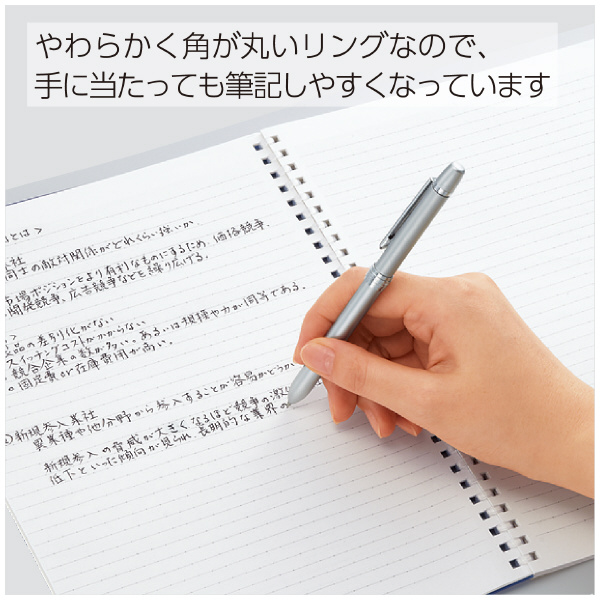 やわらかく角が丸いリングなので、
手に当たっても筆記しやすくなっています
とは>
同士の敵対関係がどれくらい強いか
市場ポジションをより有利なものにするため、価格競争、
開発競争、広告競争などを繰り広げる。
品の差別化がない
スイッチングコストがかからない
競合企業の数が多い。あるいは規模や力が同等である。
固定費or在庫費用が高い。
新規参入業社
異業種や他分野から参入することが容易かどうか
新規参入の脅威が大きくなるほど競争の激
低下といった傾向が見られ、長期的な業界の